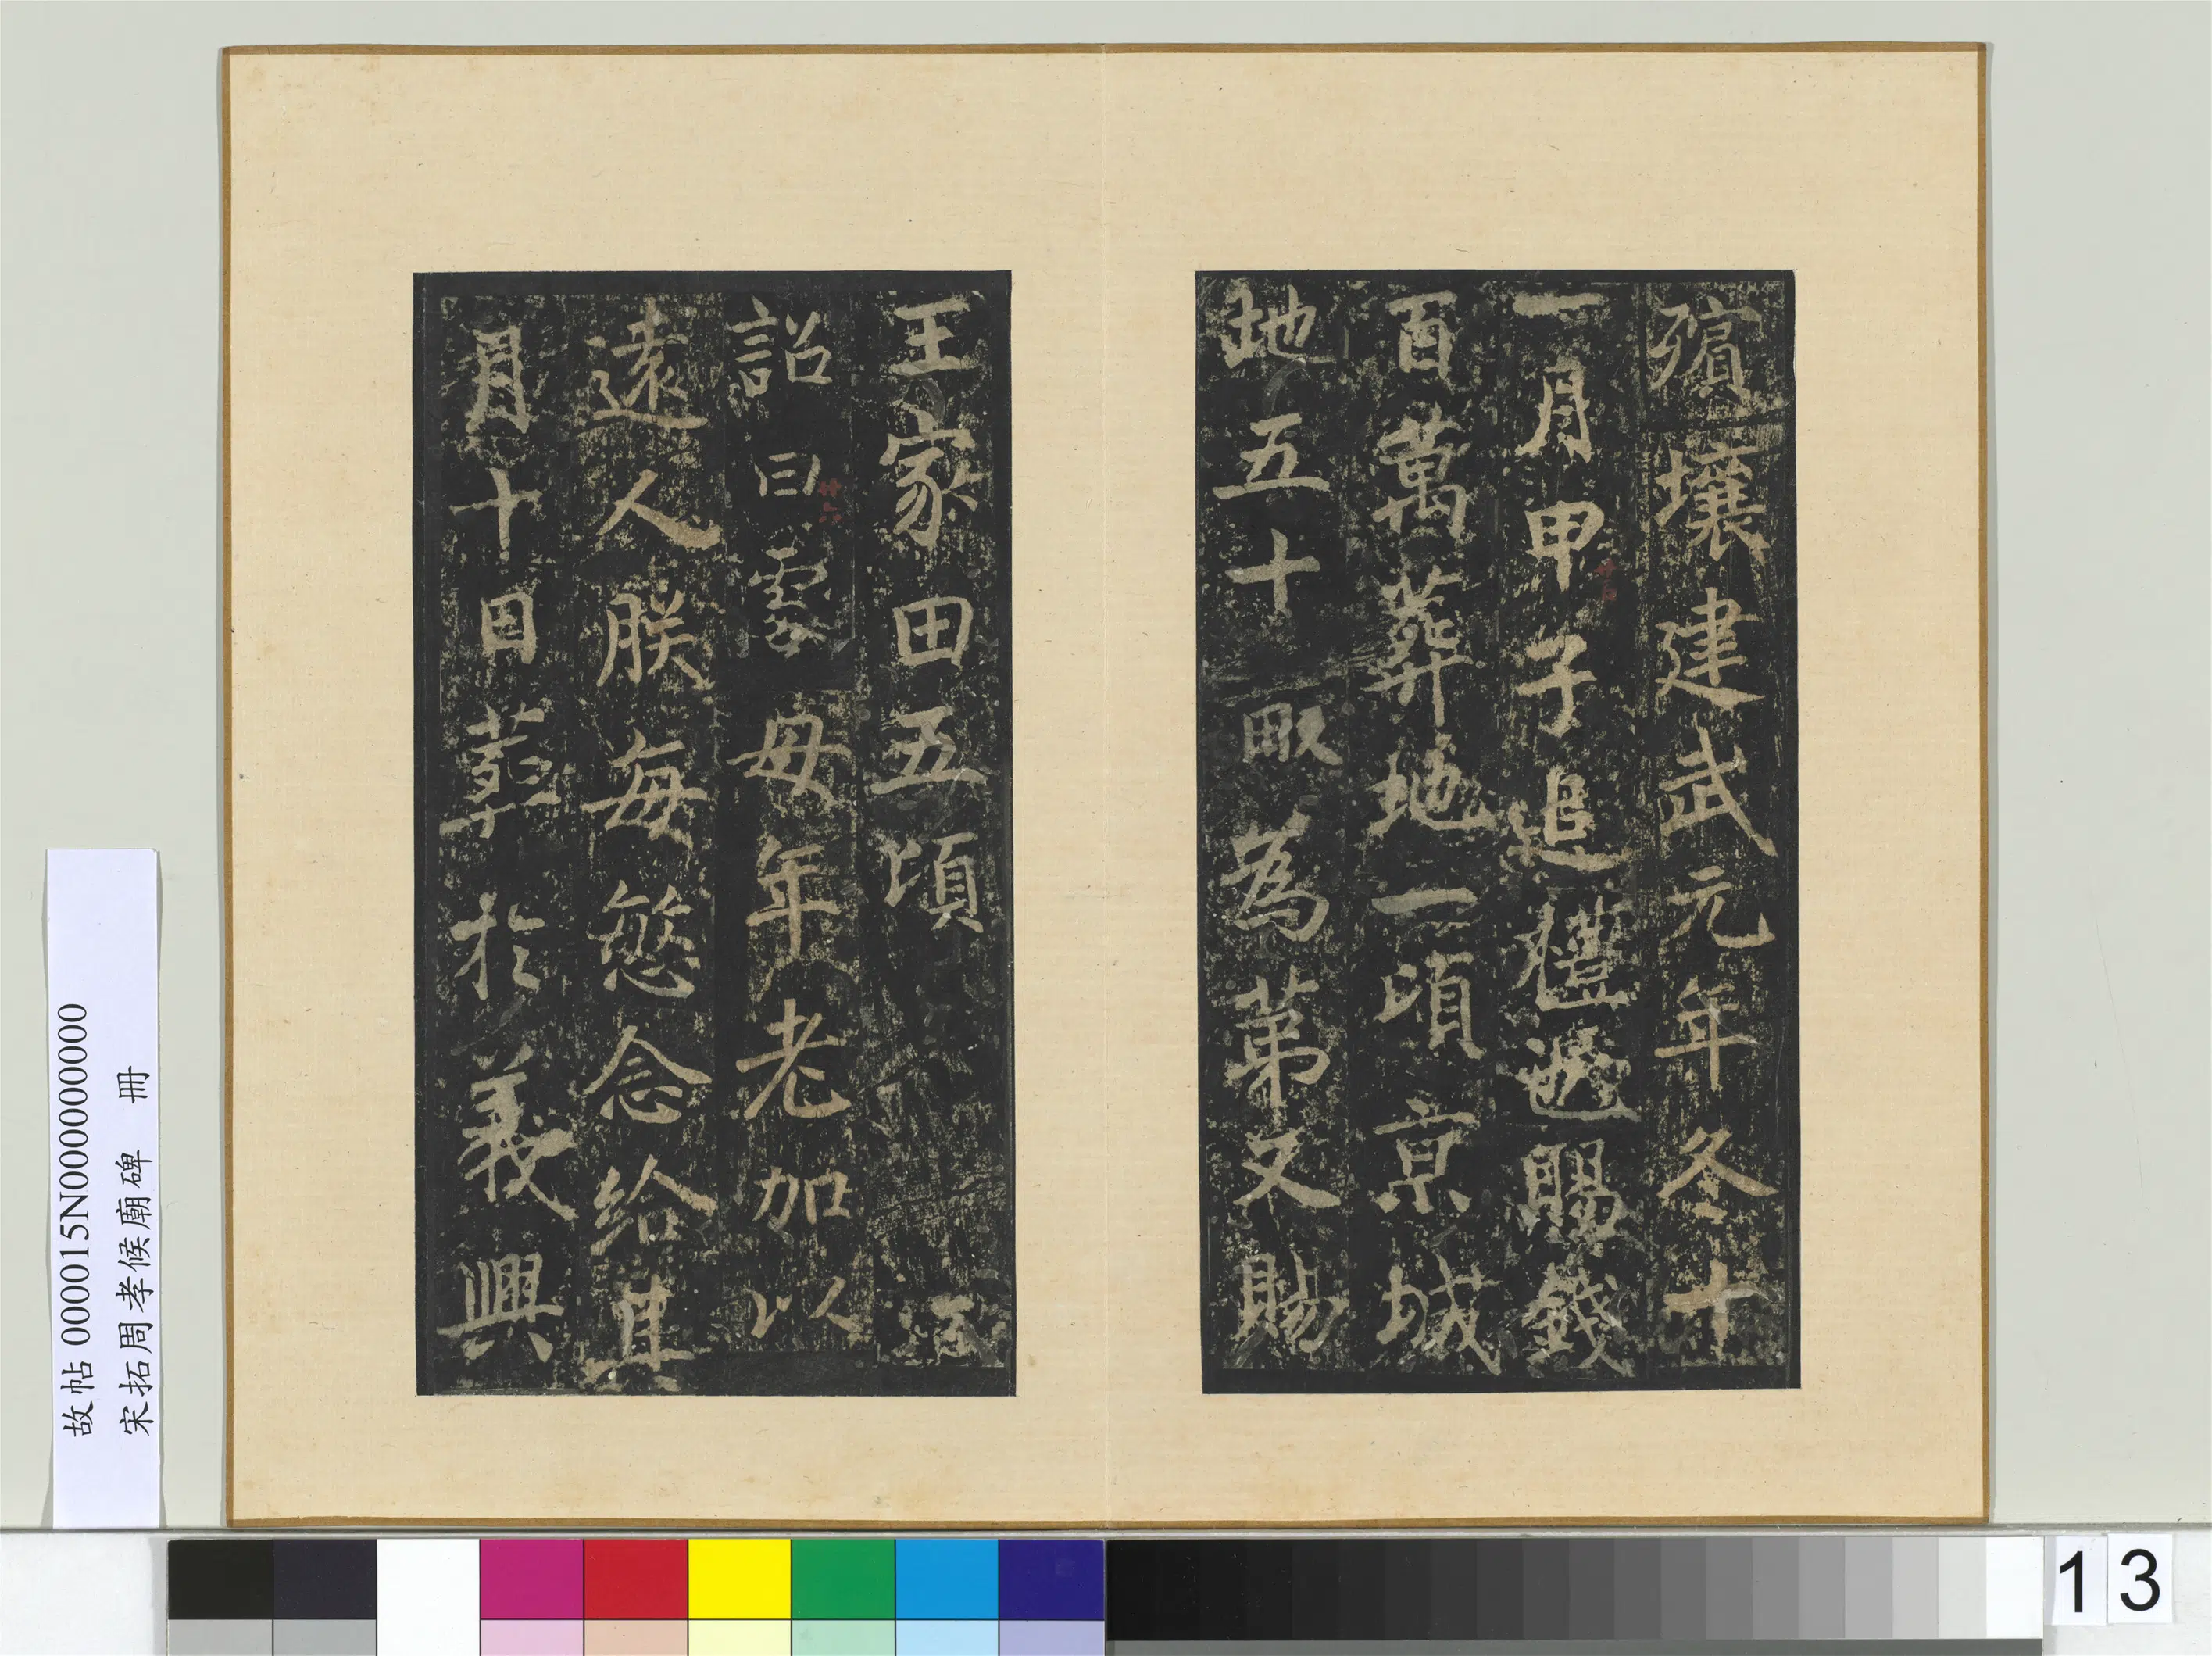 殯壤建武元年冬十
一月甲子追禮遞賜錢
百萬葬地一頃京城
地五十畞為苐又賜
王家田五頃
詔曰處母年老加以
遠人朕每慜念給其
月十日葬於義興
故帖 000015N000000000
宋拓周孝候廟碑 冊
13